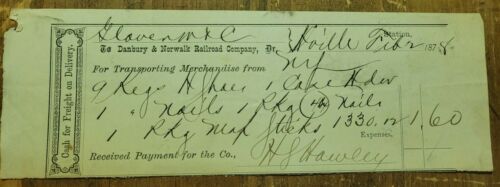 Cash for Freight on Delivery.
Glover
Station,
To Danbury & Norwalk Railroad Company, Dr.
Feb 2 1878
For Transporting Merchandise from NY
9 Kegs H Shoes 1 Case Hdw
1 " Nails 1 Pkg Nails
1 Pkg Mop Sticks 1330. 1.60
Expenses,
Received Payment for the Co.,
H S Hawley